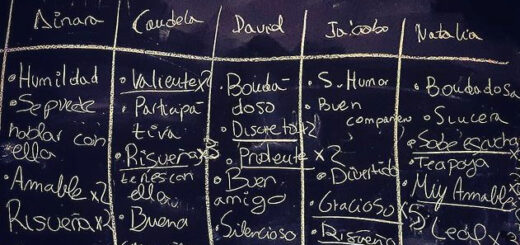 Ainara
Humildad
Se puede
hablar con
ella
Amable x2
Risueña x2
Candela
Valiente x2
Participa
tiva
Risueña x3
te ries con
ella
Buena
David
Bonda
doso
Discreto x2
Prudente x2
Buen
amigo
Silencioso
Jacobo
S. Humor
Buen
compañero
Divertido
Gracioso x5
Risueño
Natalia
Bondadosa
Sincera
Sabe escuchar
Te apoya
Muy Amable x2
Leal x2